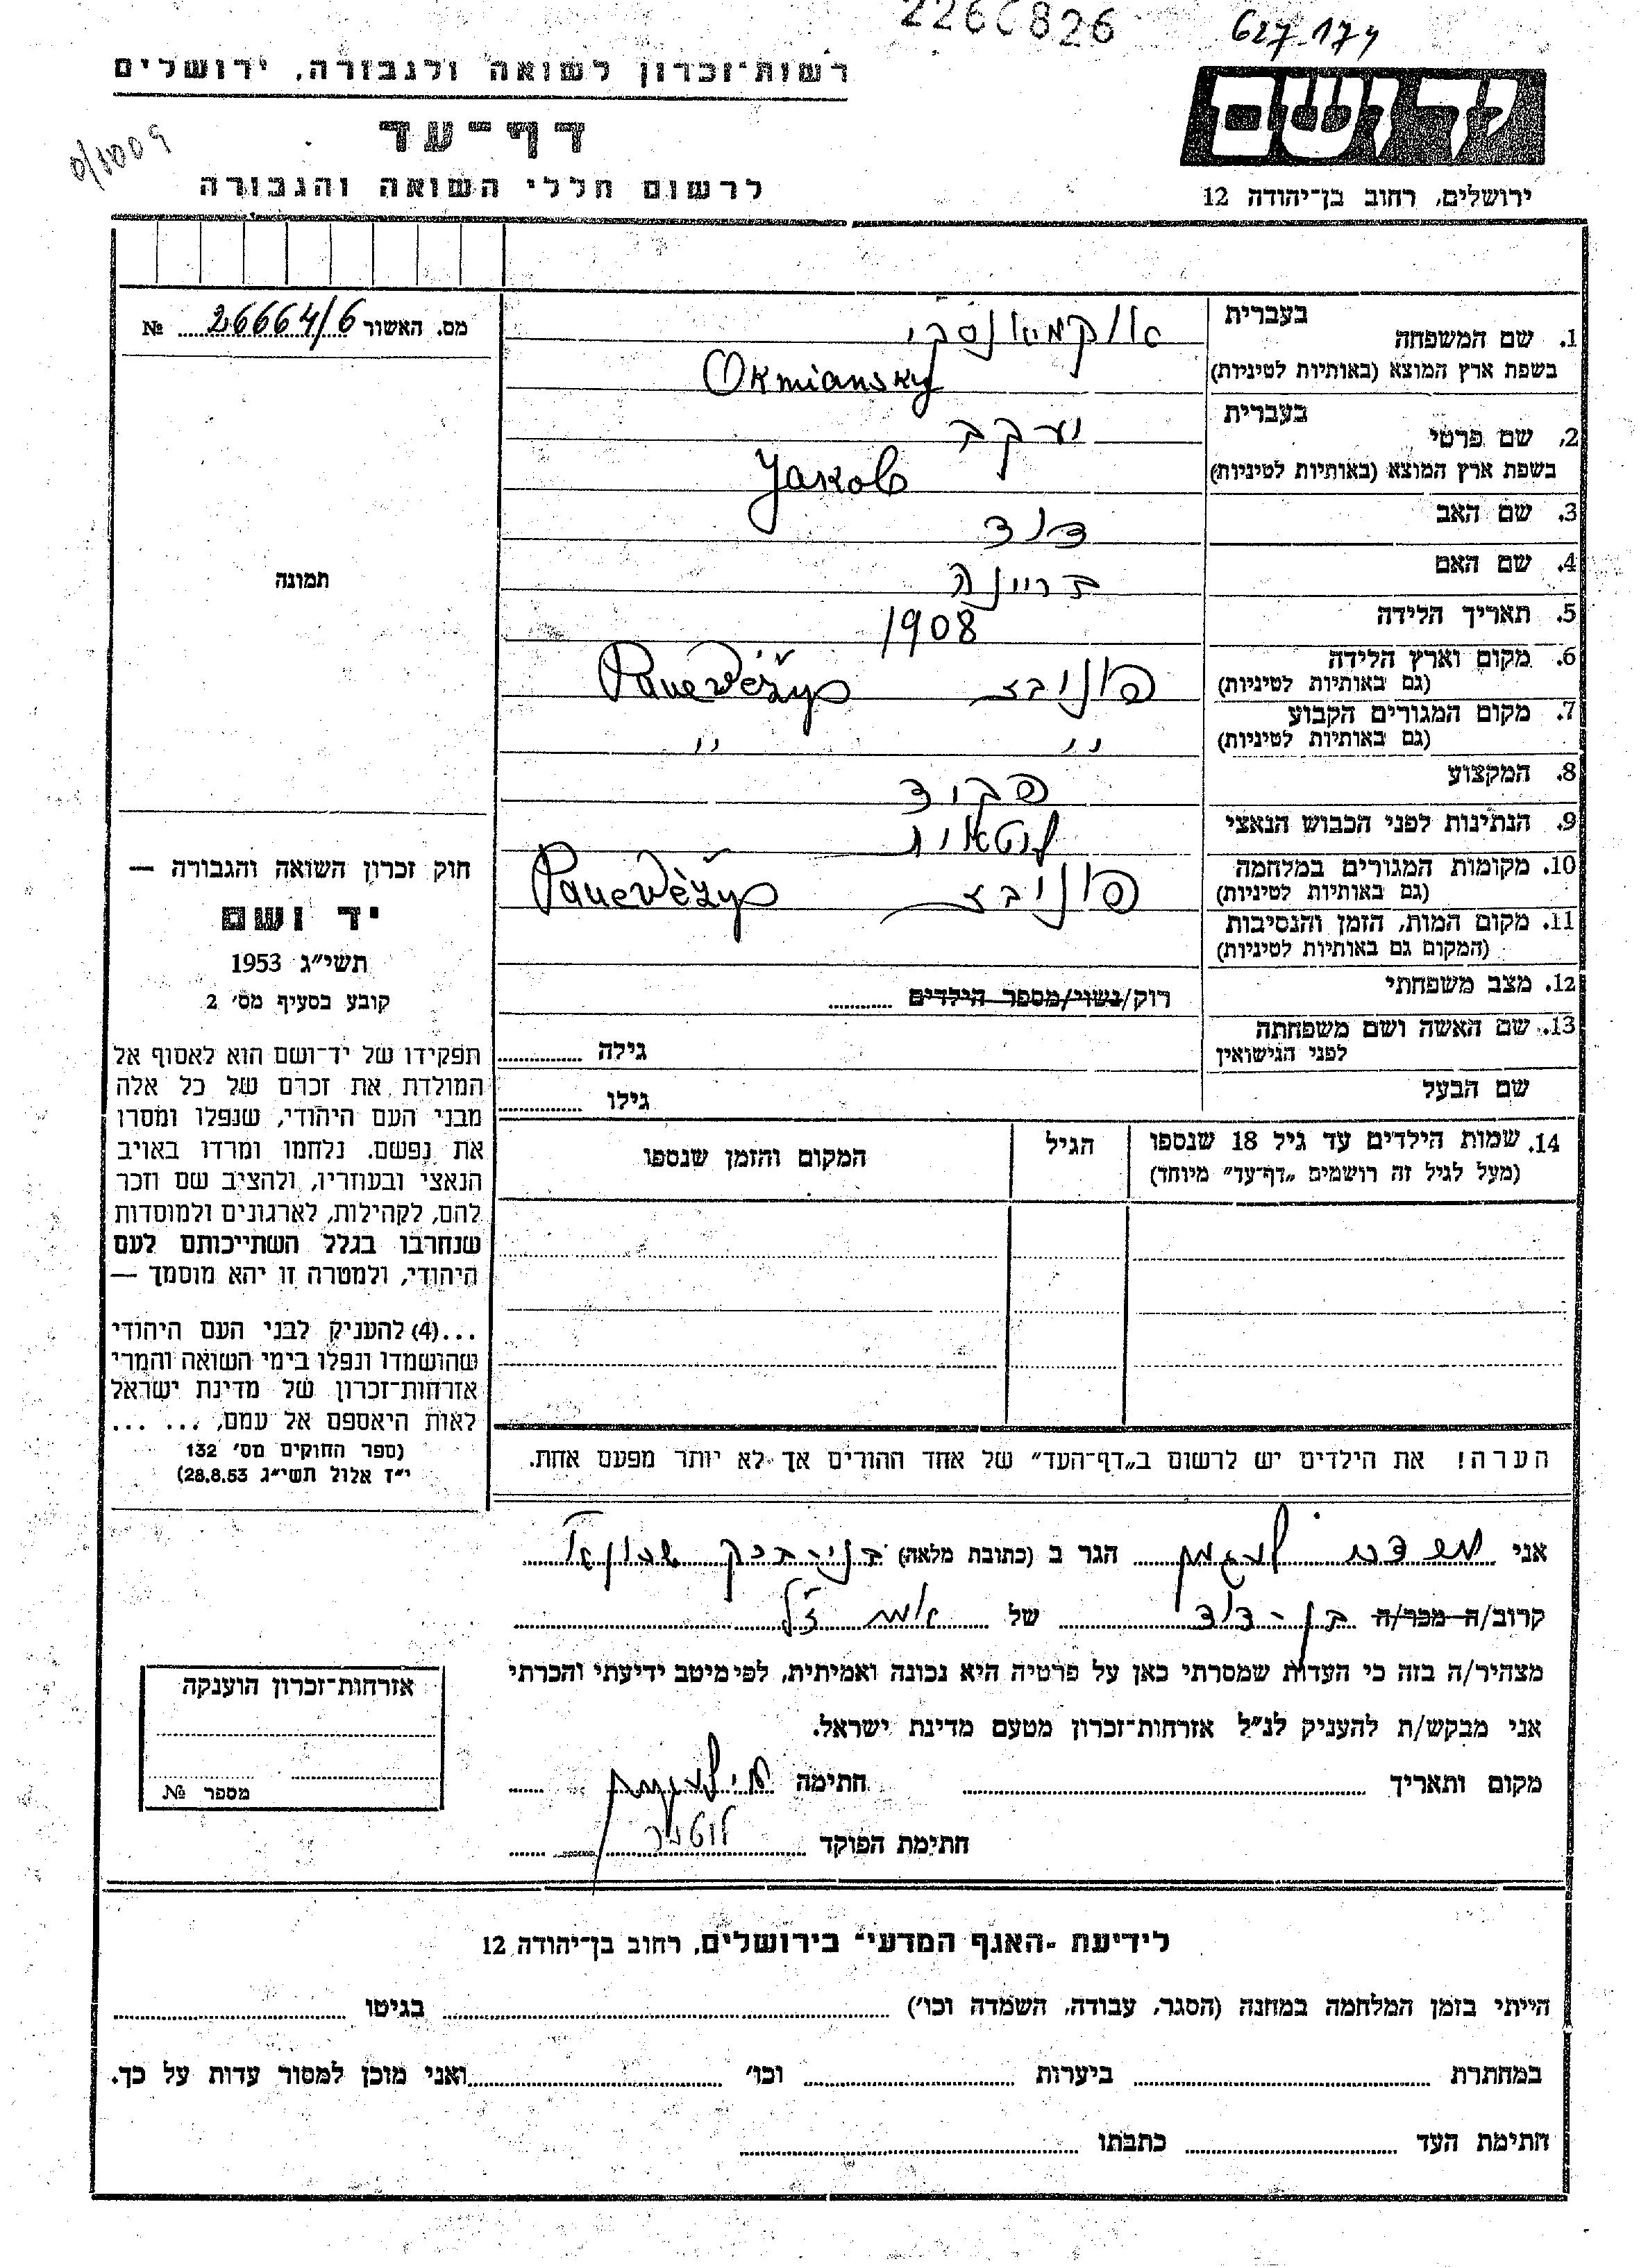 2266826
627.174
רשות־זכרון לשואה ולגבורה, ירושלים
0/1009
דף־עד
ידושם
לרשום חללי השואה והגבורה
ירושלים, רחוב בן־יהודה 12
מס. האשור 26664/6 №
1. שם המשפחה בעברית אוקמיאנסקי
בשפת ארץ המוצא (באותיות לטיניות) Okmiansky
2. שם פרטי בעברית יעקב
בשפת ארץ המוצא (באותיות לטיניות) Jakob
3. שם האב דוד
4. שם האם בריינה
5. תאריך הלידה 1908
6. מקום וארץ הלידה (גם באותיות לטיניות) פוניבז Panevėžys
7. מקום המגורים הקבוע (גם באותיות לטיניות) " "
8. המקצוע פקיד
9. הנתינות לפני הכבוש הנאצי ליטאית
10. מקומות המגורים במלחמה (גם באותיות לטיניות) פוניבז Panevėžys
11. מקום המות, הזמן והנסיבות
(המקום גם באותיות לטיניות)
12. מצב משפחתי רוק/נשוי/מספר הילדים
13. שם האשה ושם משפחתה לפני הנישואין גילה
שם הבעל גילו
14. שמות הילדים עד גיל 18 שנספו
(מעל לגיל זה רושמים „דף־עד” מיוחד)
הגיל
המקום והזמן שנספו
תמונה
חוק זכרון השואה והגבורה —
יד ושם
תשי״ג 1953
קובע בסעיף מס׳ 2
תפקידו של יד־ושם הוא לאסוף אל
המולדת את זכרם של כל אלה
מבני העם היהודי, שנפלו ומסרו
את נפשם. נלחמו ומרדו באויב
הנאצי ובעוזריו, ולהציב שם וזכר
להם, לקהילות, לארגונים ולמוסדות
שנחרבו בגלל השתייכותם לעם
היהודי, ולמטרה זו יהא מוסמך —
...(4) להעניק לבני העם היהודי
שהושמדו ונפלו בימי השואה והמרי
אזרחות־זכרון של מדינת ישראל
לאות היאספם אל עמם, ... ...
(ספר החוקים מס׳ 132
י״ז אלול תשי״ג 28.8.53)
הערה! את הילדים יש לרשום ב„דף־העד” של אחד ההורים אך לא יותר מפעם אחת.
אני הגר ב (כתובת מלאה) בני-ברק
קרוב/ה מכר/ה בן-דוד של אמי ז״ל
מצהיר/ה בזה כי העדות שמסרתי כאן על פרטיה היא נכונה ואמיתית, לפי מיטב ידיעתי והכרתי
אני מבקש/ת להעניק לנ״ל אזרחות־זכרון מטעם מדינת ישראל.
מקום ותאריך חתימה
חתימת הפוקד
אזרחות־זכרון הוענקה
מספר №
לידיעת „האגף המדעי” בירושלים, רחוב בן־יהודה 12
הייתי בזמן המלחמה במחנה (הסגר, עבודה, השמדה וכו׳) בגיטו
במחתרת ביערות וכו׳ ואני מוכן למסור עדות על כך.
חתימת העד כתבתו